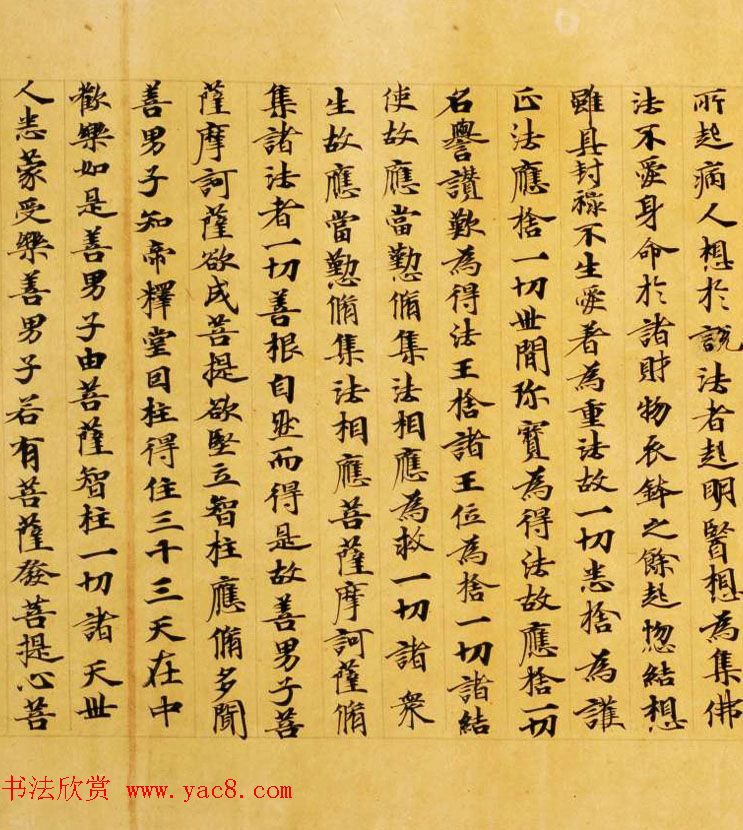 所起病人想於說法者起明醫想為集佛
法不愛身命於諸財物衣鉢之餘起惚結想
雖具封祿不生愛著為重法故一切悉捨為護
正法應捨一切世間珎寶為得法故應捨一切
名譽讃歎為得法王捨諸王位為捨一切諸結
使故應當懃脩集法相應為救一切諸衆
生故應當懃脩集法相應菩薩摩訶薩脩
集諸法者一切善根自然而得是故善男子菩
薩摩訶薩欲成菩提欲堅立智柱應脩多聞
善男子如帝釋堂因柱得住三十三天在中
歡樂如是善男子由菩薩智柱一切諸天世
人悉蒙受樂善男子若有菩薩發菩提心菩
书法欣赏 www.yac8.com